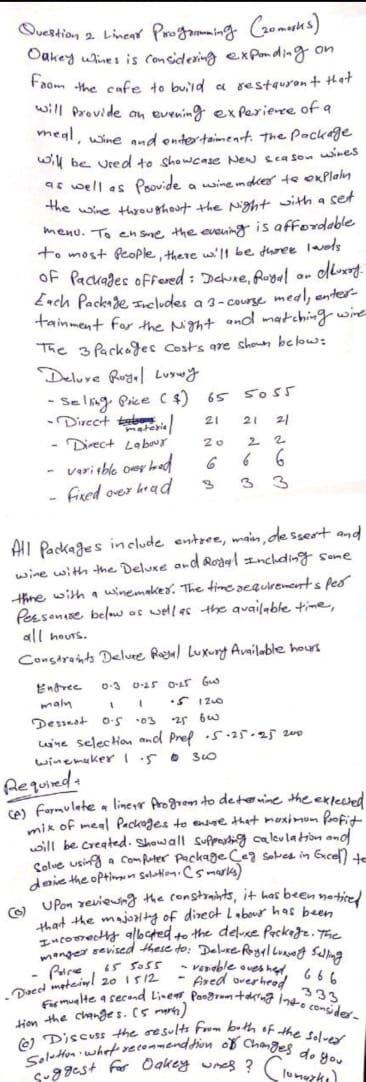 Question 2 Linear Programming (20 marks)
Oakey wines is considering expanding on
from the cafe to build a restaurant that
will provide an evening experience of a
meal, wine and entertainment. The Package
will be used to showcase New season wines
as well as Provide a winemaker to explain
the wine throughout the Night with a set
menu. To ensure the evening is affordable
to most people, there will be three levels
of Packages offered: Deluxe, Royal or Luxury.
Each Package Includes a 3-course meal, enter-
tainment for the Night and matching wine
The 3 Packages Costs are shown below:
Deluxe Royal Luxury
- Selling Price ($) 65 50 55
- Direct material 21 21 21
- Direct Labour 20 2 2
- variable over head 6 6 6
- fixed over head 3 3 3
All Packages include entree, main, dessert and
wine with the Deluxe and Royal Including some
time with a winemaker. The time requirements per
Person are below as well as the available time,
all hours.
Constraints Deluxe Royal Luxury Available hours
Entree 0.3 0.25 0.25 600
main 1 1 .5 1200
Dessert 0.5 .03 .25 600
wine selection and Prep .5 .25 .25 200
winemaker 1 .5 0 300
Required:
(A) Formulate a linear Program to determine the expected
mix of meal Packages to ensure that maximum Profit
will be created. Show all supporting calculation and
Solve using a computer Package (eg solver in Excel) to
derive the optimum solution. (5 marks)
Upon reviewing the constraints, it has been noticed
that the majority of direct Labour has been
Incorrectly allocated to the deluxe Package. The
manger revised these to: Deluxe Royal Luxury Selling
- Price 65 50 55 - variable over head 6 6 6
- Direct material 20 15 12 - fixed overhead 3 3 3
Formulte a second Linear Program taking Into consider-
tion the changes. (5 marks)
(C) Discuss the results from both of the Solver
Solution. what recommendtion of Changes do you
Suggest for Oakey wines? (10 marks)